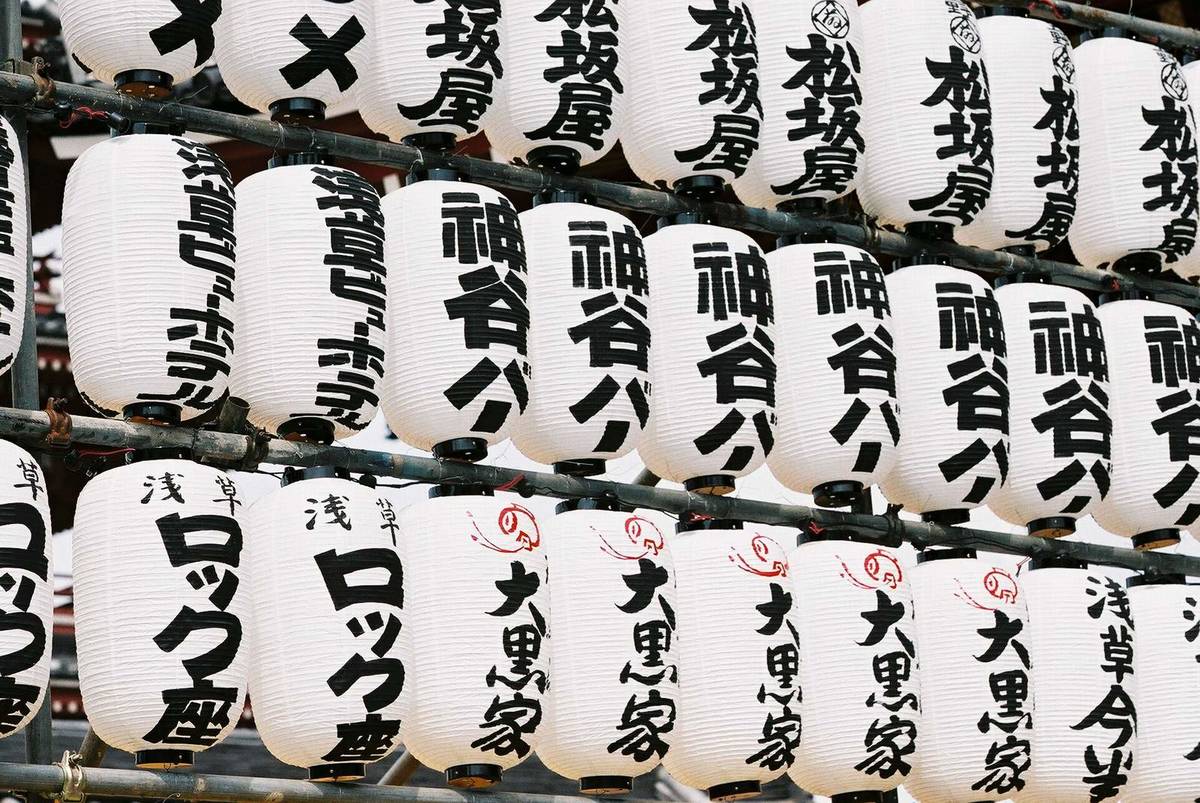 メ
メ
松坂屋
松坂屋
松坂屋
松坂屋
松坂屋
松坂屋
松坂屋
浅草ビューホテル
浅草ビューホテル
神谷バー
神谷バー
神谷バー
神谷バー
神谷バー
神谷バー
神谷バー
草
ロック座
浅草
ロック座
浅草
ロック座
大黒家
大黒家
大黒家
大黒家
大黒家
浅草今半